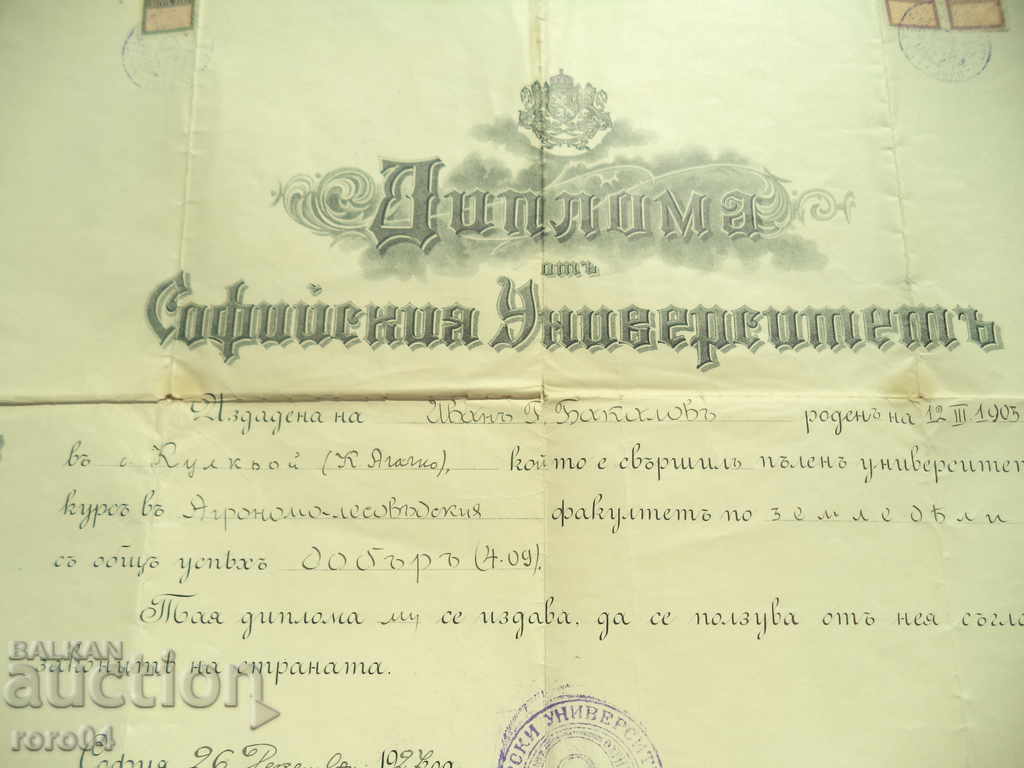 Диплома
отъ
Софийския Университетъ
Издадена на Иванъ Г. Бакаловъ роденъ на 12 III 1903
въ с Кулкьой (К Ягачко), който е свършилъ пъленъ университет
курсъ въ Агрономо-лесовъдския факултетъ по земледѣли
съ общъ успѣхъ добъръ (4.09).
Тая диплома му се издава, да се ползува отъ нея съгла
законитѣ на страната.
София 26 192 год
СКИ УНИВЕРСИТ
BALKAN
auction
roro04